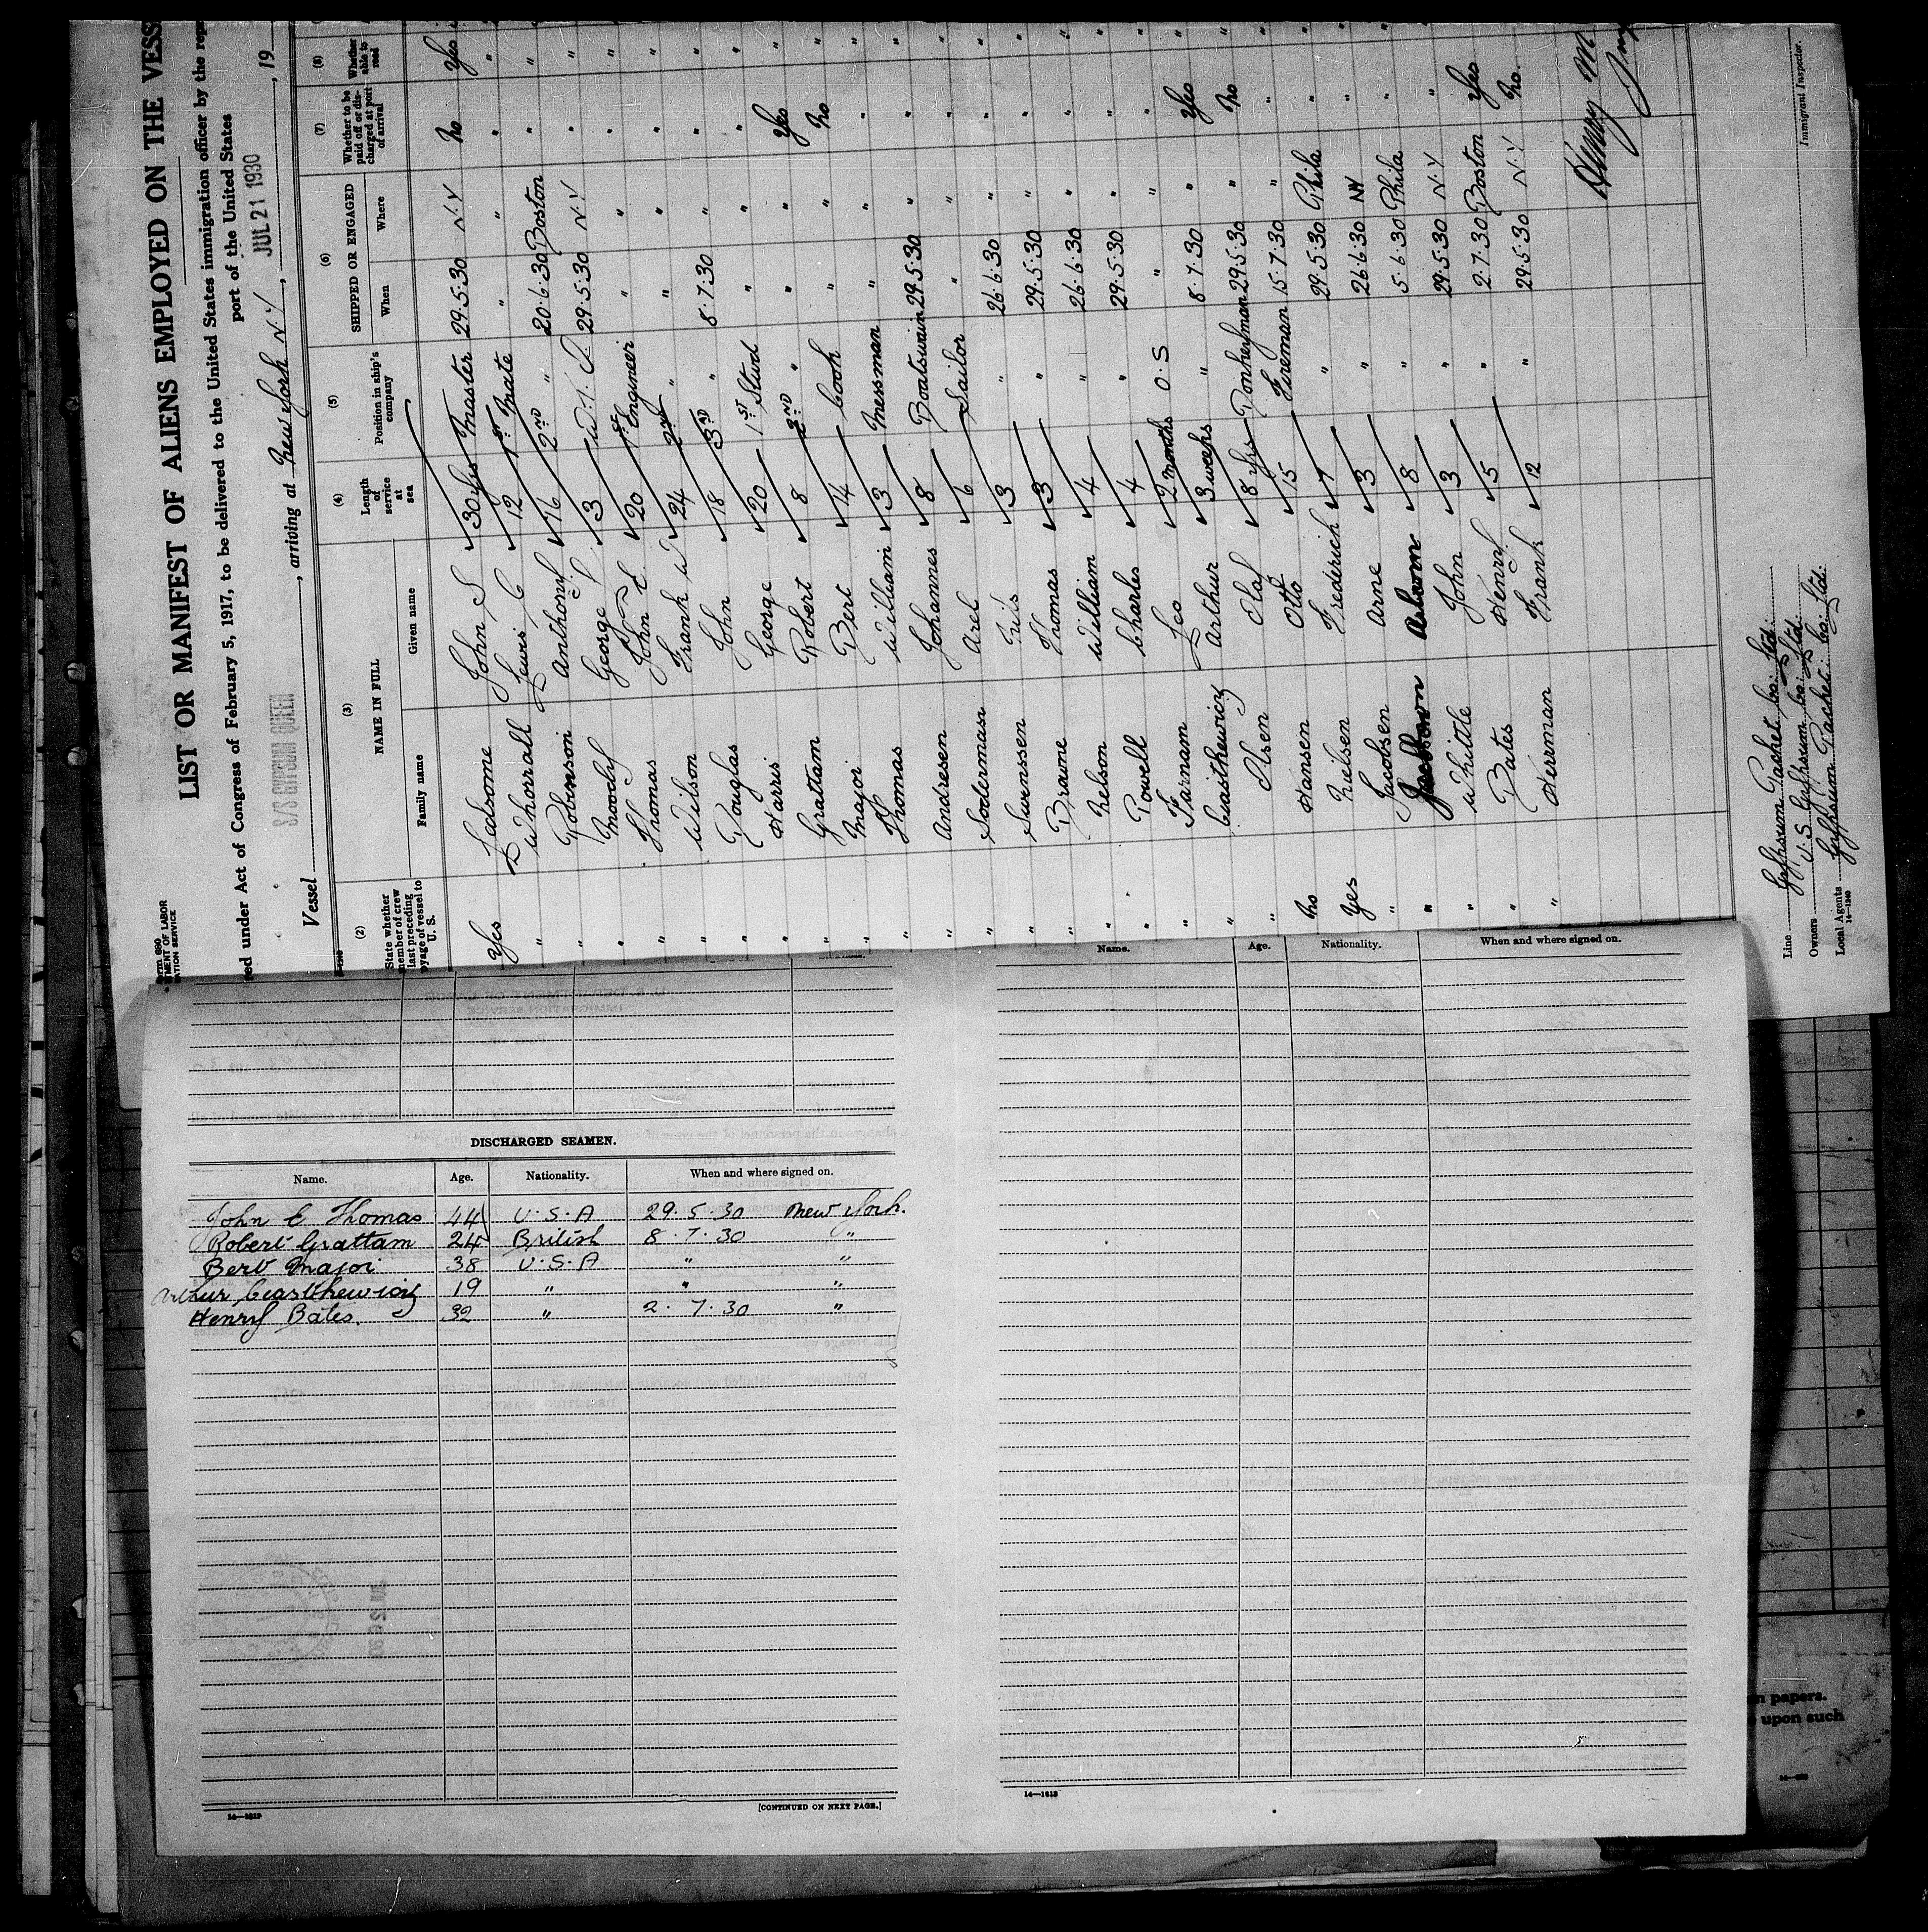 LIST OR MANIFEST OF ALIENS EMPLOYED ON THE VESS
red under Act of Congress of February 5, 1917, to be delivered to the United States immigration officer by the rep
port of the United States
Vessel S/S GYPSUM QUEEN, arriving at New York N.Y., JUL 21 1930, 19
(2) (3) (4) (5) (6) (7) (8)
State whether member of crew last preceding voyage of vessel to U. S. NAME IN FULL Length of service at sea Position in ship's company SHIPPED OR ENGAGED Whether to be paid off or discharged at port of arrival Whether able to read
Family name Given name When Where
Yes Ledsome John S 30 yrs Master 29.5.30 N.Y No Yes
" Whorrall Lewis C 12 1st Mate " " " "
" Robinson Anthony 16 2ND " 20.6.30 Boston " "
" Moody George 3 W.T.O 29.5.30 N.Y " "
" Thomas John E 20 1st Engineer " " " "
" Wilson Frank W 24 2nd " " " " "
" Douglas John 18 3RD " 8.7.30 " " "
" Harris George 20 1ST Stwd " " " "
" Grattam Robert 8 2ND " " " Yes "
" Major Bert 14 Cook " " No "
" Thomas William 3 Messman " " " "
" Andresen Johannes 8 Boatswain 29.5.30 " " "
" Soderman Axel 6 Sailor " " " "
" Swenssen Nils 3 " 26.6.30 " " "
" Browne Thomas 3 " 29.5.30 " " "
" Nelson William 4 " 26.6.30 " " "
" Powell Charles 4 " 29.5.30 " " "
" Farnam Leo 2 months O.S " " " "
" Ceasthewicz Arthur 3 weeks " 8.7.30 " Yes "
" Olsen Olaf 8 yrs Donkeyman 29.5.30 " No "
No Hansen Otto 15 Fireman 15.7.30 " "
Yes Nielsen Frederich 7 " 29.5.30 Phila "
" Jacobsen Arne 3 " 26.6.30 NY "
" 8 " 5.6.30 Phila "
" Whittle John 3 " 29.5.30 N.Y "
" Bates Henry 5 " 2.7.30 Boston Yes
" Herrman Frank 12 " 29.5.30 N.Y No.
Henry M
Line Gypsum Packet Co: Ltd.
Owners U.S. Gypsum Co: Ltd.
Local Agents Gypsum Packet Co: Ltd.
14—1240
Immigrant Inspector.
DISCHARGED SEAMEN.
Name. Age. Nationality. When and where signed on.
John E Thomas 44 U.S.A 29.5.30 New York.
Robert Grattam 24 British 8.7.30 "
Bert Major 38 U.S.A " "
Arthur Ceasthewicz 19 " " "
Henry Bates. 32 " 2.7.30 "
[CONTINUED ON NEXT PAGE.]
Name. Age. Nationality. When and where signed on.
n papers.
upon such